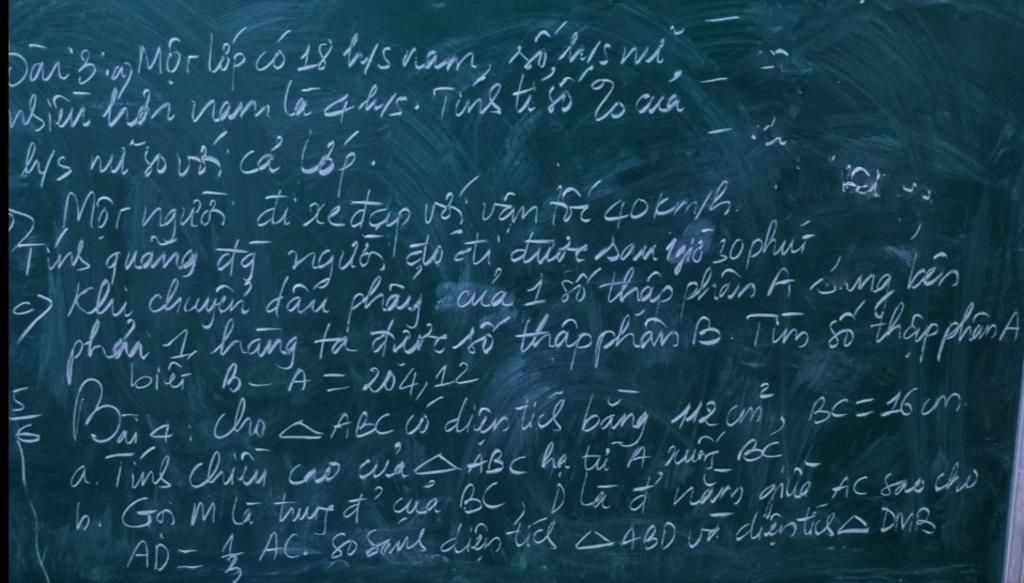 Bài 3. a, Một lớp có 18 h/s nam, số h/s nữ
nhiều hơn nam là 4 h/s. Tính tỉ số % của
h/s nữ so với cả lớp.
Một người đi xe đạp với vận tốc 40km/h.
Tính quãng đg người đó đi được sau 1 giờ 30 phút
c) Khi chuyển dấu phẩy của 1 số thập phân A sang bên
phải 1 hàng ta được số thập phân B. Tìm số thập phân A
biết B - A = 204,12
5/6
Bài 4. Cho △ ABC có diện tích bằng 112 cm², BC = 16 cm
a. Tính chiều cao của △ ABC hạ từ A xuống BC
b. Gọi M là trung đ' của BC, D là đ' nằm giữa AC sao cho
AD = 1/3 AC. So sánh diện tích △ ABD và diện tích △ DMB